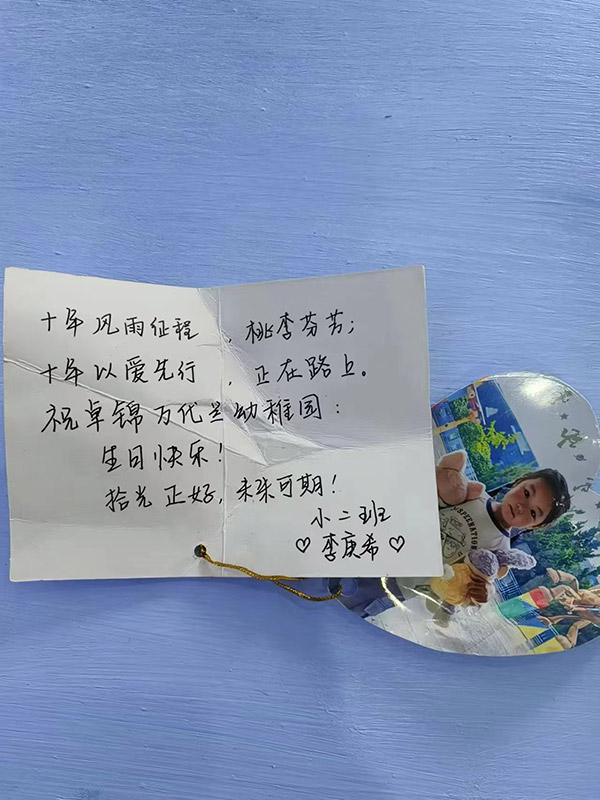 十年风雨征程，桃李芬芳；
十年以爱先行，正在路上。
祝卓锦万代兰幼稚园：
生日快乐！
拾光正好，未来可期！
小二班
♡李庚希♡